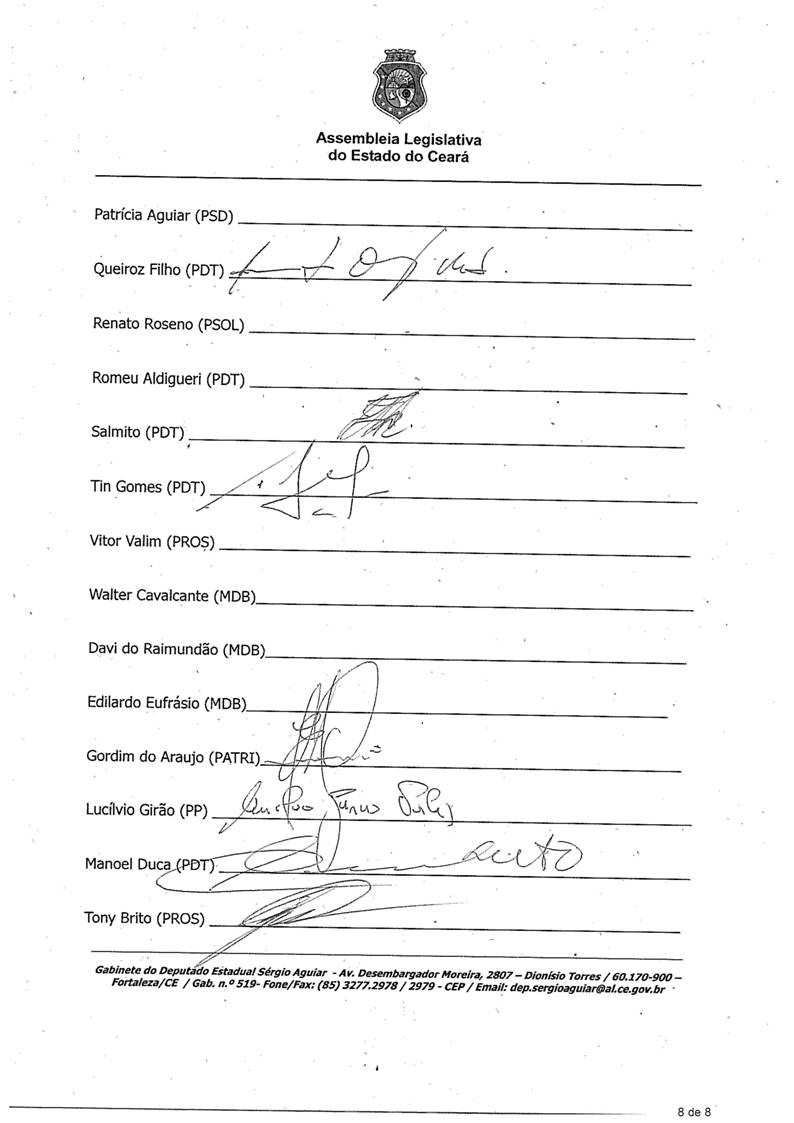 Assembleia Legislativa
do Estado do Ceará
Patrícia Aguiar (PSD)
Queiroz Filho (PDT)
Renato Roseno (PSOL)
Romeu Aldigueri (PDT)
Salmito (PDT)
Tin Gomes (PDT)
Vitor Valim (PROS)
Walter Cavalcante (MDB)
Davi do Raimundão (MDB)
Edilardo Eufrásio (MDB)
Gordim do Araujo (PATRI)
Lucílvio Girão (PP)
Manoel Duca (PDT)
Tony Brito (PROS)
Gabinete do Deputado Estadual Sérgio Aguiar - Av. Desembargador Moreira, 2807 – Dionísio Torres / 60.170-900 –
Fortaleza/CE / Gab. n.º 519- Fone/Fax: (85) 3277.2978 / 2979 - CEP / Email: dep.sergioaguiar@al.ce.gov.br
8 de 8